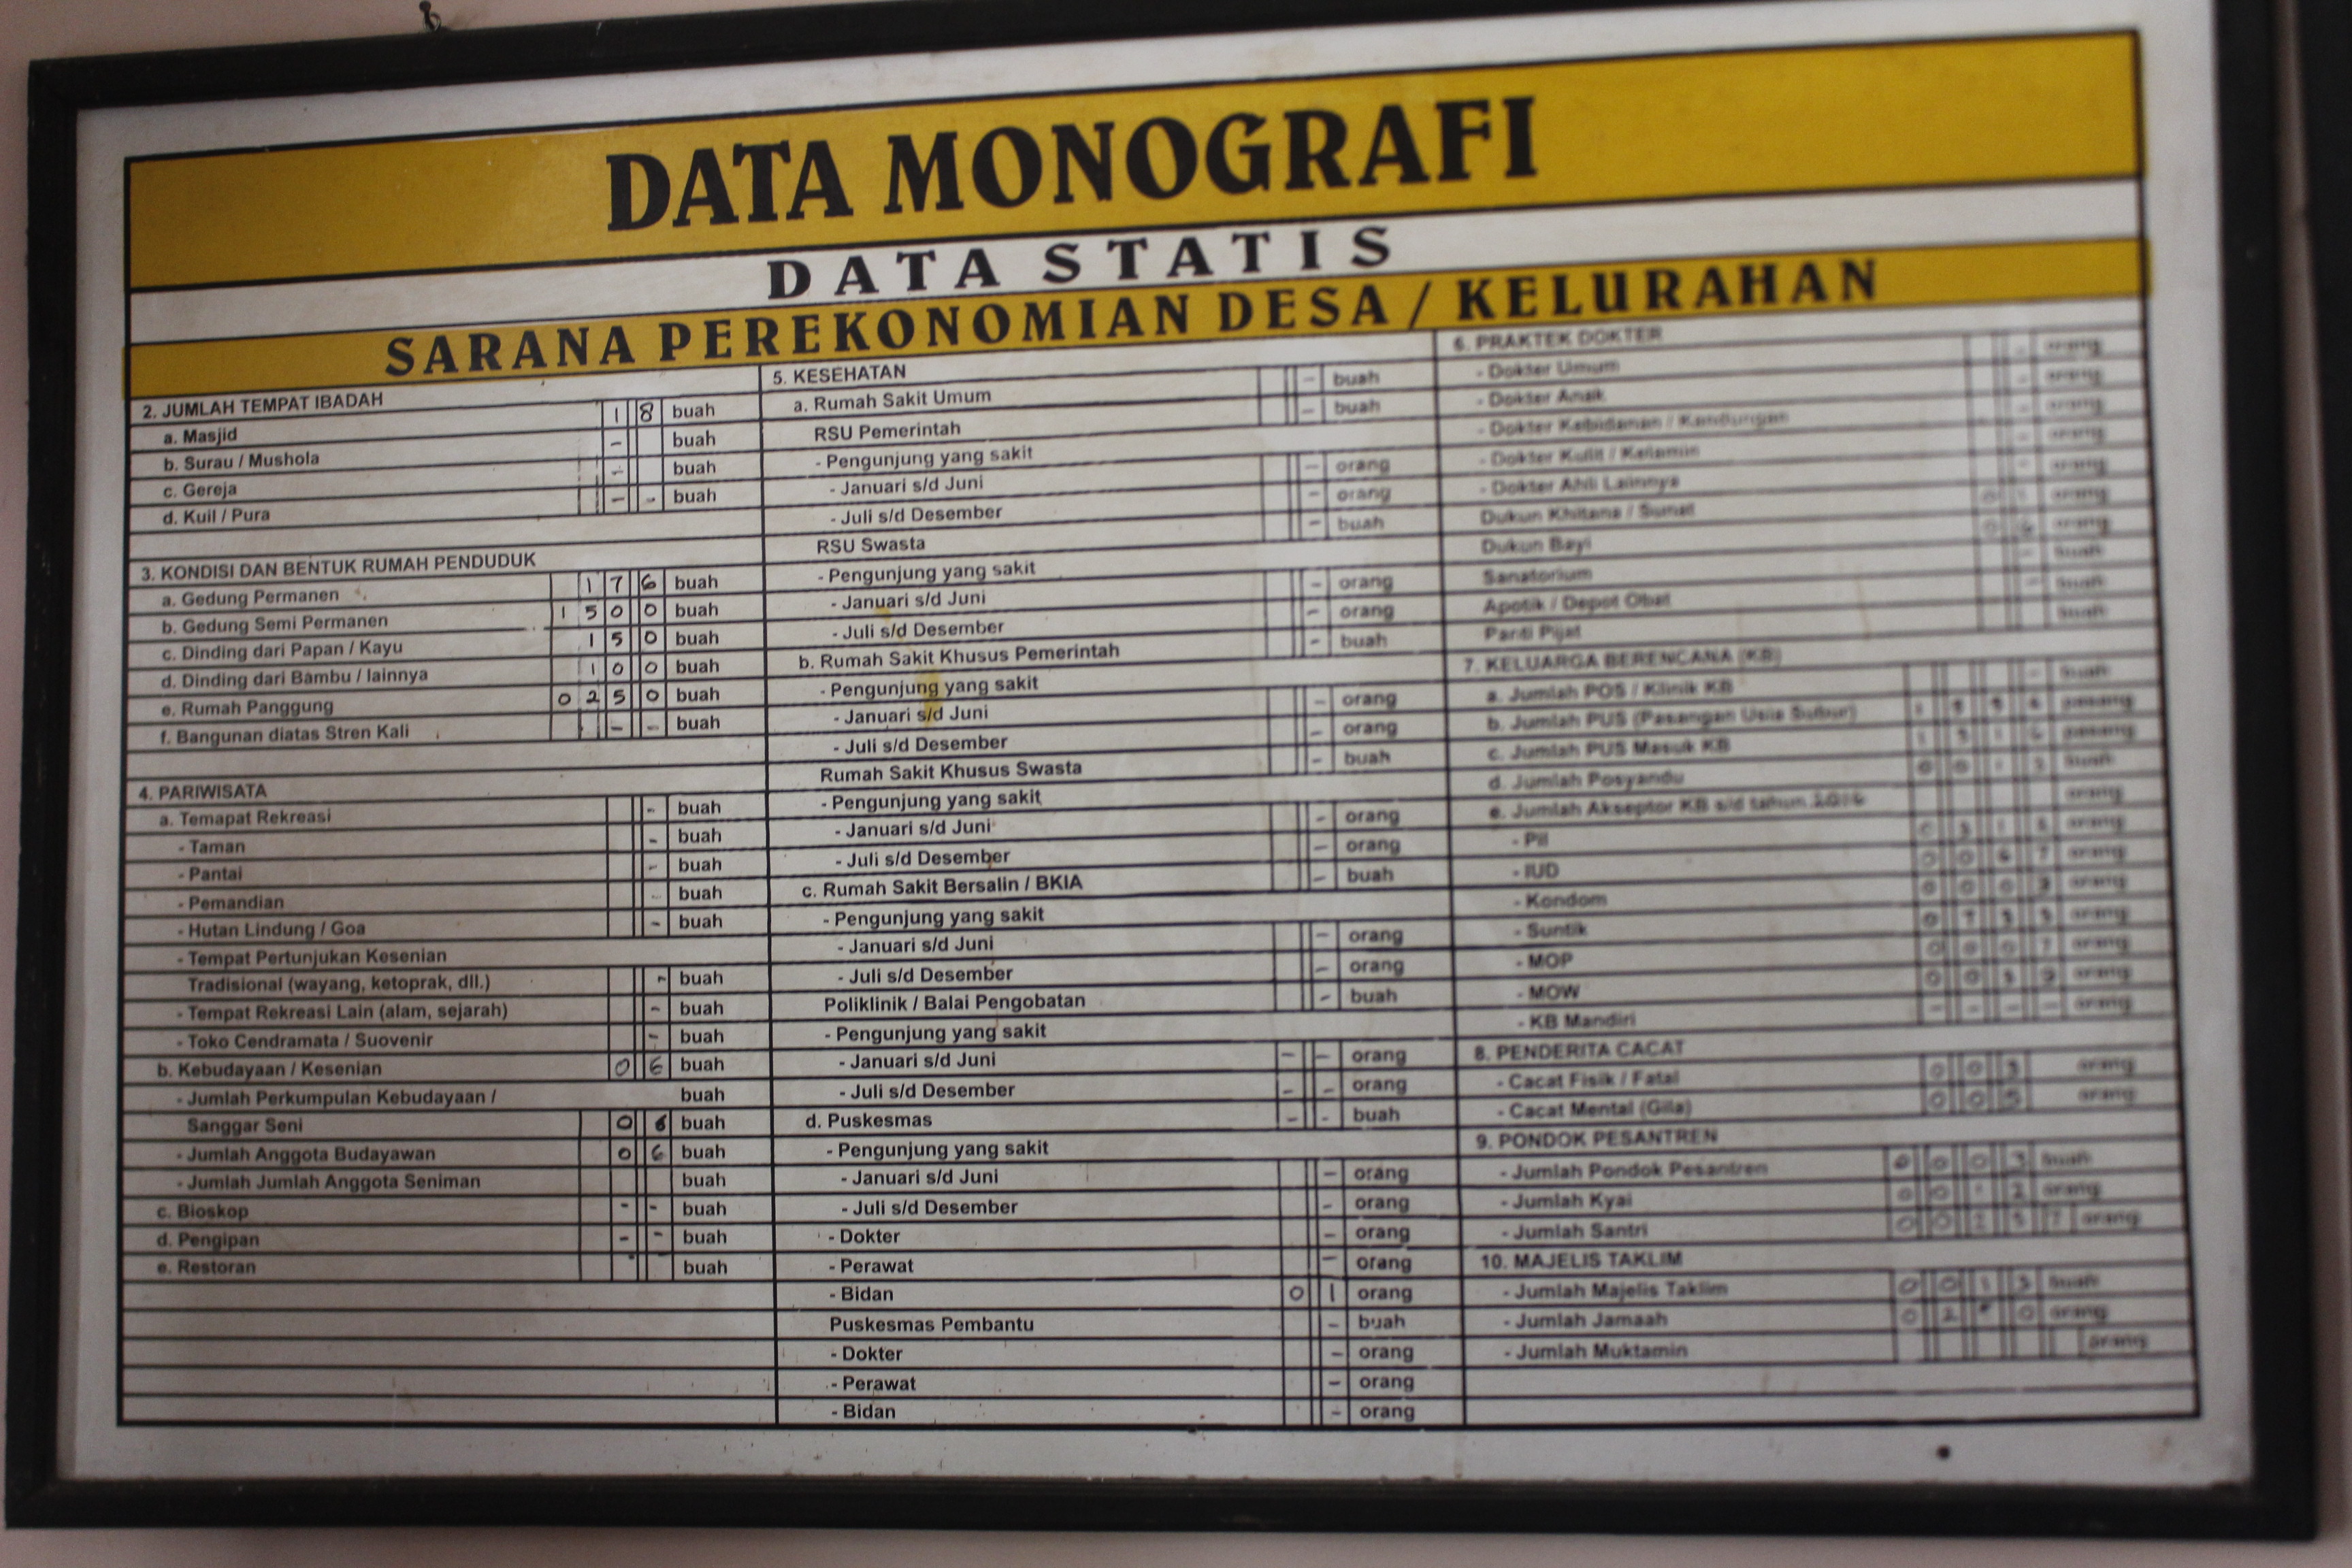 DATA MONOGRAFI
DATA STATIS
SARANA PEREKONOMIAN DESA / KELURAHAN
2. JUMLAH TEMPAT IBADAH
a. Masjid 1 8 buah
b. Surau / Mushola - buah
c. Gereja - buah
d. Kuil / Pura - - buah
3. KONDISI DAN BENTUK RUMAH PENDUDUK
a. Gedung Permanen 1 7 6 buah
b. Gedung Semi Permanen 1 5 0 0 buah
c. Dinding dari Papan / Kayu 1 5 0 buah
d. Dinding dari Bambu / lainnya 1 0 0 buah
e. Rumah Panggung 0 2 5 0 buah
f. Bangunan diatas Stren Kali - - buah
4. PARIWISATA
a. Temapat Rekreasi - buah
- Taman - buah
- Pantai - buah
- Pemandian - buah
- Hutan Lindung / Goa - buah
- Tempat Pertunjukan Kesenian
Tradisional (wayang, ketoprak, dll.) - buah
- Tempat Rekreasi Lain (alam, sejarah) - buah
- Toko Cendramata / Suovenir - buah
b. Kebudayaan / Kesenian 0 6 buah
- Jumlah Perkumpulan Kebudayaan / buah
Sanggar Seni 0 6 buah
- Jumlah Anggota Budayawan 0 6 buah
- Jumlah Jumlah Anggota Seniman buah
c. Bioskop - - buah
d. Pengipan - - buah
e. Restoran buah
5. KESEHATAN - buah
a. Rumah Sakit Umum - buah
RSU Pemerintah
- Pengunjung yang sakit - orang
- Januari s/d Juni - orang
- Juli s/d Desember - buah
RSU Swasta
- Pengunjung yang sakit - orang
- Januari s/d Juni - orang
- Juli s/d Desember - buah
b. Rumah Sakit Khusus Pemerintah
- Pengunjung yang sakit - orang
- Januari s/d Juni - orang
- Juli s/d Desember - buah
Rumah Sakit Khusus Swasta
- Pengunjung yang sakit - orang
- Januari s/d Juni - orang
- Juli s/d Desember - buah
c. Rumah Sakit Bersalin / BKIA
- Pengunjung yang sakit - orang
- Januari s/d Juni - orang
- Juli s/d Desember - buah
Poliklinik / Balai Pengobatan
- Pengunjung yang sakit
- Januari s/d Juni - - orang
- Juli s/d Desember - - orang
d. Puskesmas - - buah
- Pengunjung yang sakit
- Januari s/d Juni - orang
- Juli s/d Desember - orang
- Dokter - orang
- Perawat - orang
- Bidan 0 1 orang
Puskesmas Pembantu - buah
- Dokter - orang
- Perawat - orang
- Bidan - orang
6. PRAKTEK DOKTER
- Dokter Umum - orang
- Dokter Anak - orang
- Dokter Kebidanan / Kandungan - orang
- Dokter Kulit / Kelamin - orang
- Dokter Ahli Lainnya - orang
Dukun Khitana / Sunat orang
Dukun Bayi orang
Sanatorium - buah
Apotik / Depot Obat - buah
Panti Pijat buah
7. KELUARGA BERENCANA (KB)
a. Jumlah POS / Klinik KB - buah
b. Jumlah PUS (Pasangan Usia Subur) pasang
c. Jumlah PUS Masuk KB pasang
d. Jumlah Posyandu buah
e. Jumlah Akseptor KB s/d tahun orang
- Pil orang
- IUD orang
- Kondom orang
- Suntik orang
- MOP orang
- MOW orang
- KB Mandiri - - - - orang
8. PENDERITA CACAT
- Cacat Fisik / Fatal orang
- Cacat Mental (Gila) orang
9. PONDOK PESANTREN
- Jumlah Pondok Pesantren buah
- Jumlah Kyai orang
- Jumlah Santri orang
10. MAJELIS TAKLIM
- Jumlah Majelis Taklim buah
- Jumlah Jamaah orang
- Jumlah Muktamin orang